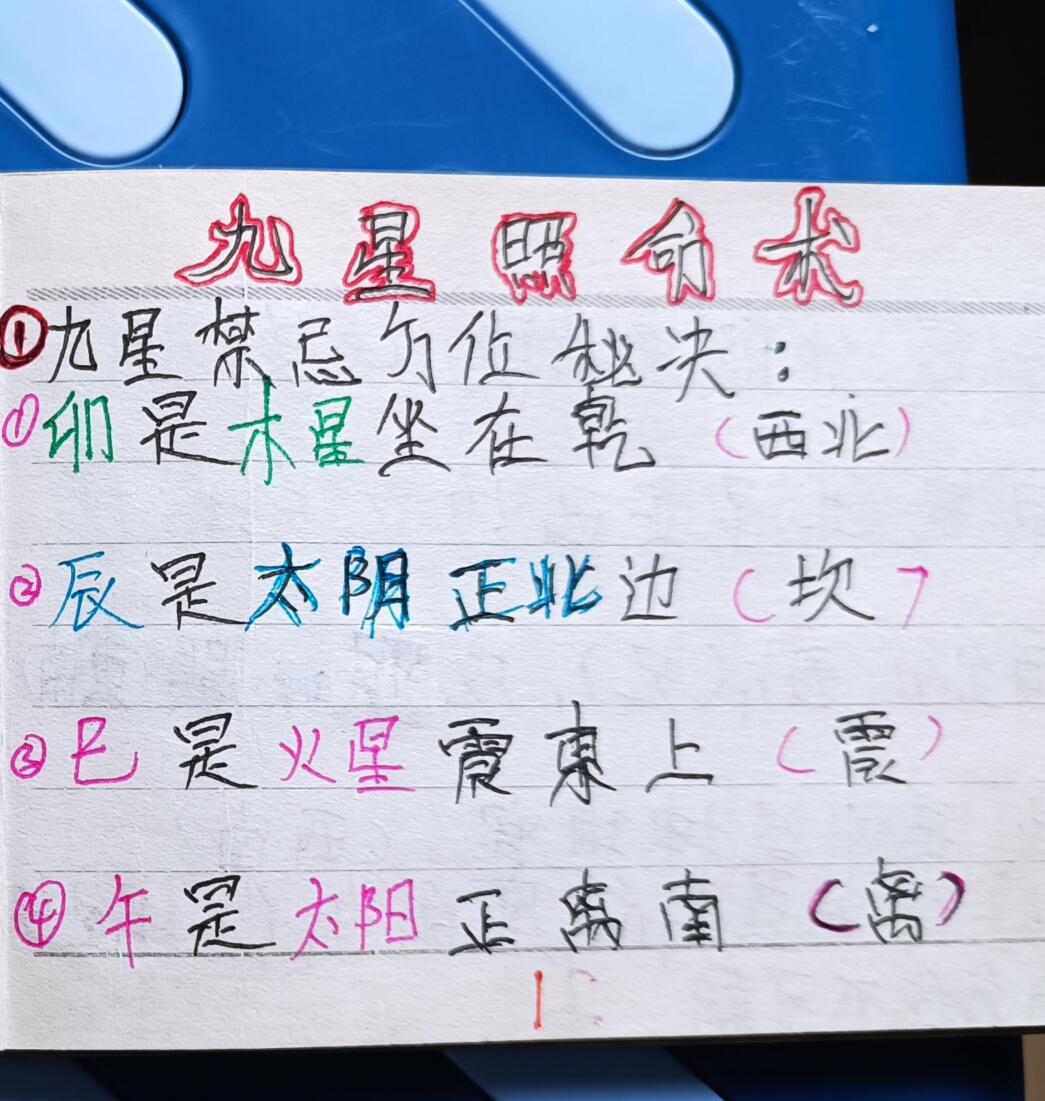 九星照命术
①九星禁忌方位秘决：
①卯是木星坐在乾（西北）
②辰是太阴正北边（坎）
③巳是火星震東上（震）
④午是太阳正离南（离）
1